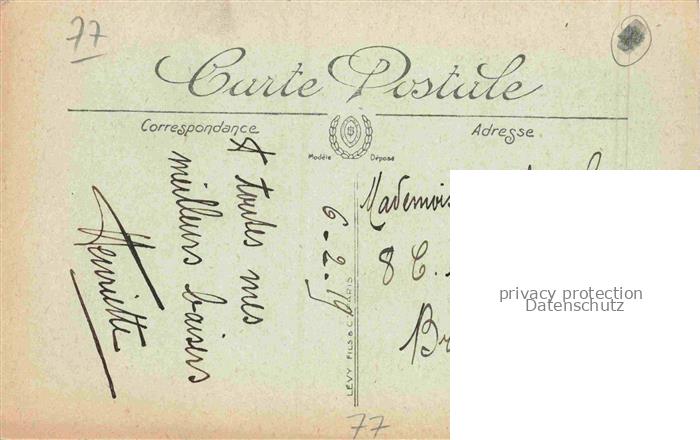 77
Carte Postale
Correspondance
Adresse
Modèle Déposé
A toutes mes
meilleurs baisers
Henriette
6-2-19
LEVY FILS & C. PARIS
8
privacy protection
Datenschutz
77